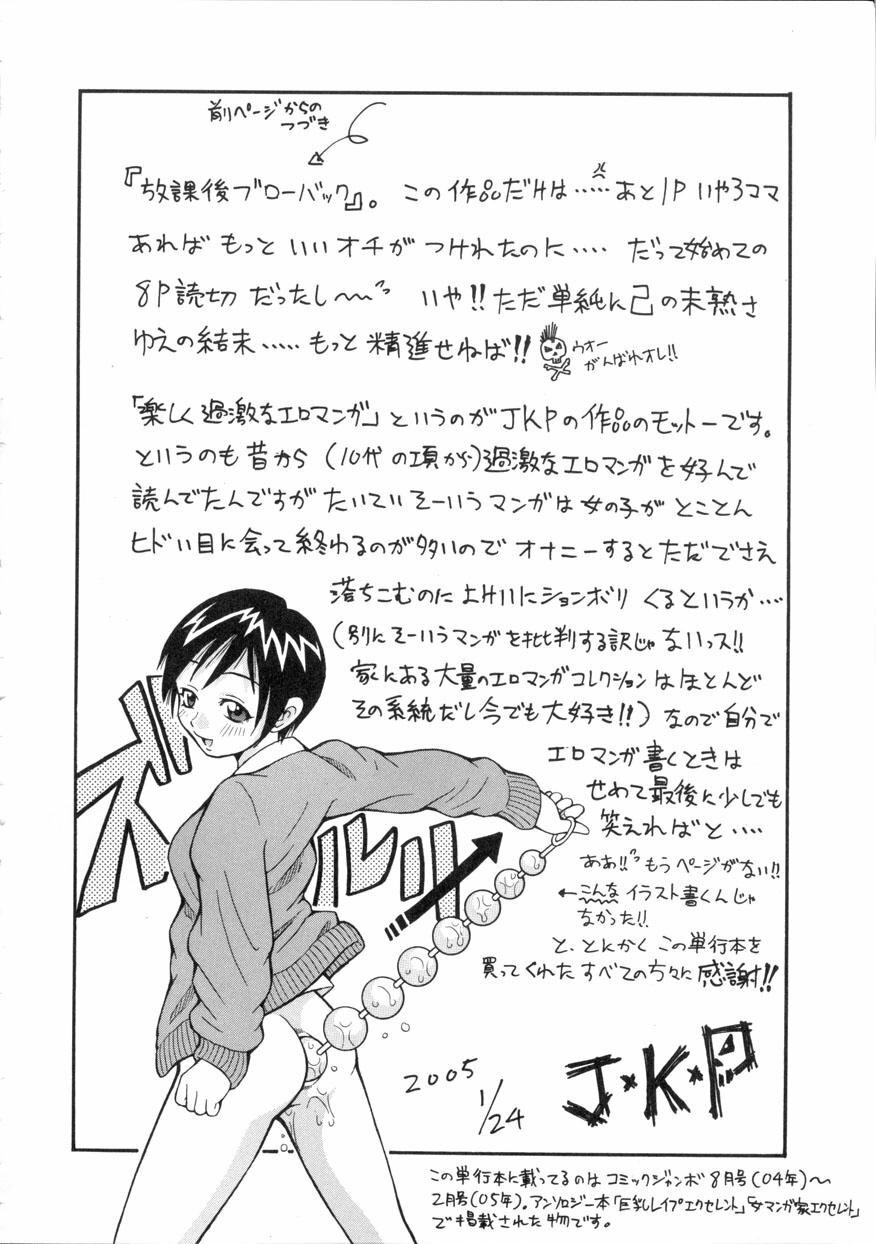 前ページからの
つづき
『放課後ブローバック』。この作品だけは……あと1P いやろママ
あれば もっと いい オチが つけれたのに‥‥ だって始めての
8P読切 だったし〜〜 いや!!ただ単純に己の未熟さ
ゆえの結末……もっと精進せねば!!
ウオー
がんばれオレ!!
「楽しく過激なエロマンガ」というのがJKPの作品のモットーです。
というのも昔から(10代の項から)過激なエロマンガを好んで
読んでたんですが たいていそーいうマンガは女の子が とことん
ヒドい目に会って終わるのが多いので オナニーするとただでさえ
落ちこむのに よけいにションボリ くるというか‥‥
(別にそーいうマンガを批判する訳じゃないっス!!
家にある大量のエロマンガコレクションはほとんど
その系統だし今でも大好き!!)なので自分で
エロマンガ書くときは
せめて最後に少しでも
笑えればと‥‥
ああ!! もうページがない!!
←こんな イラスト書くんじゃ
なかった!!
と、とにかく この単行本を
買ってくれた すべての方々に 感謝!!
ズルルリ
2005
1/24
J・K・P
この単行本に載ってるのは コミックジャンボ 8月号(04年)〜
2月号(05年)。アンソロジー本「巨乳レイプエクセレント」「女マンガ家エクセレント」
で掲載された物です。